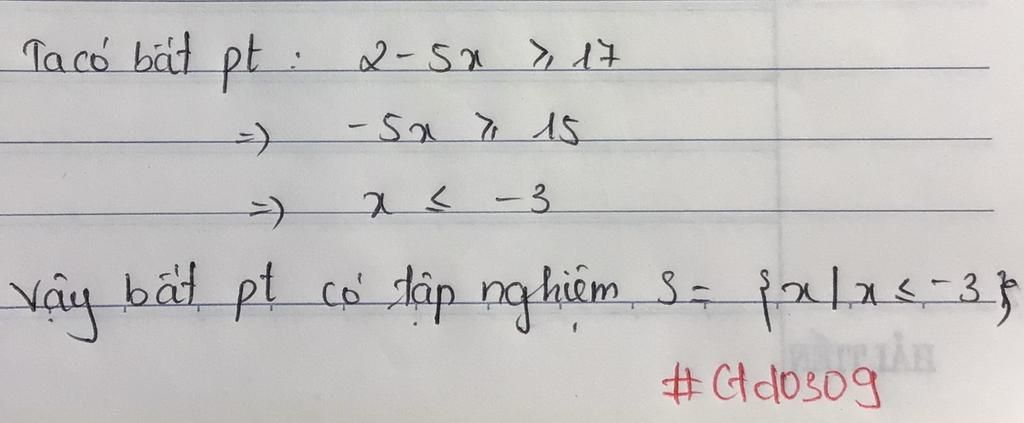 Ta có bất pt : 2 - 5x ⩾ 17
=) -5x ⩾ 15
=) x ≤ -3
Vậy bất pt có tập nghiệm S = {x | x ≤ -3}
#Gtd0309